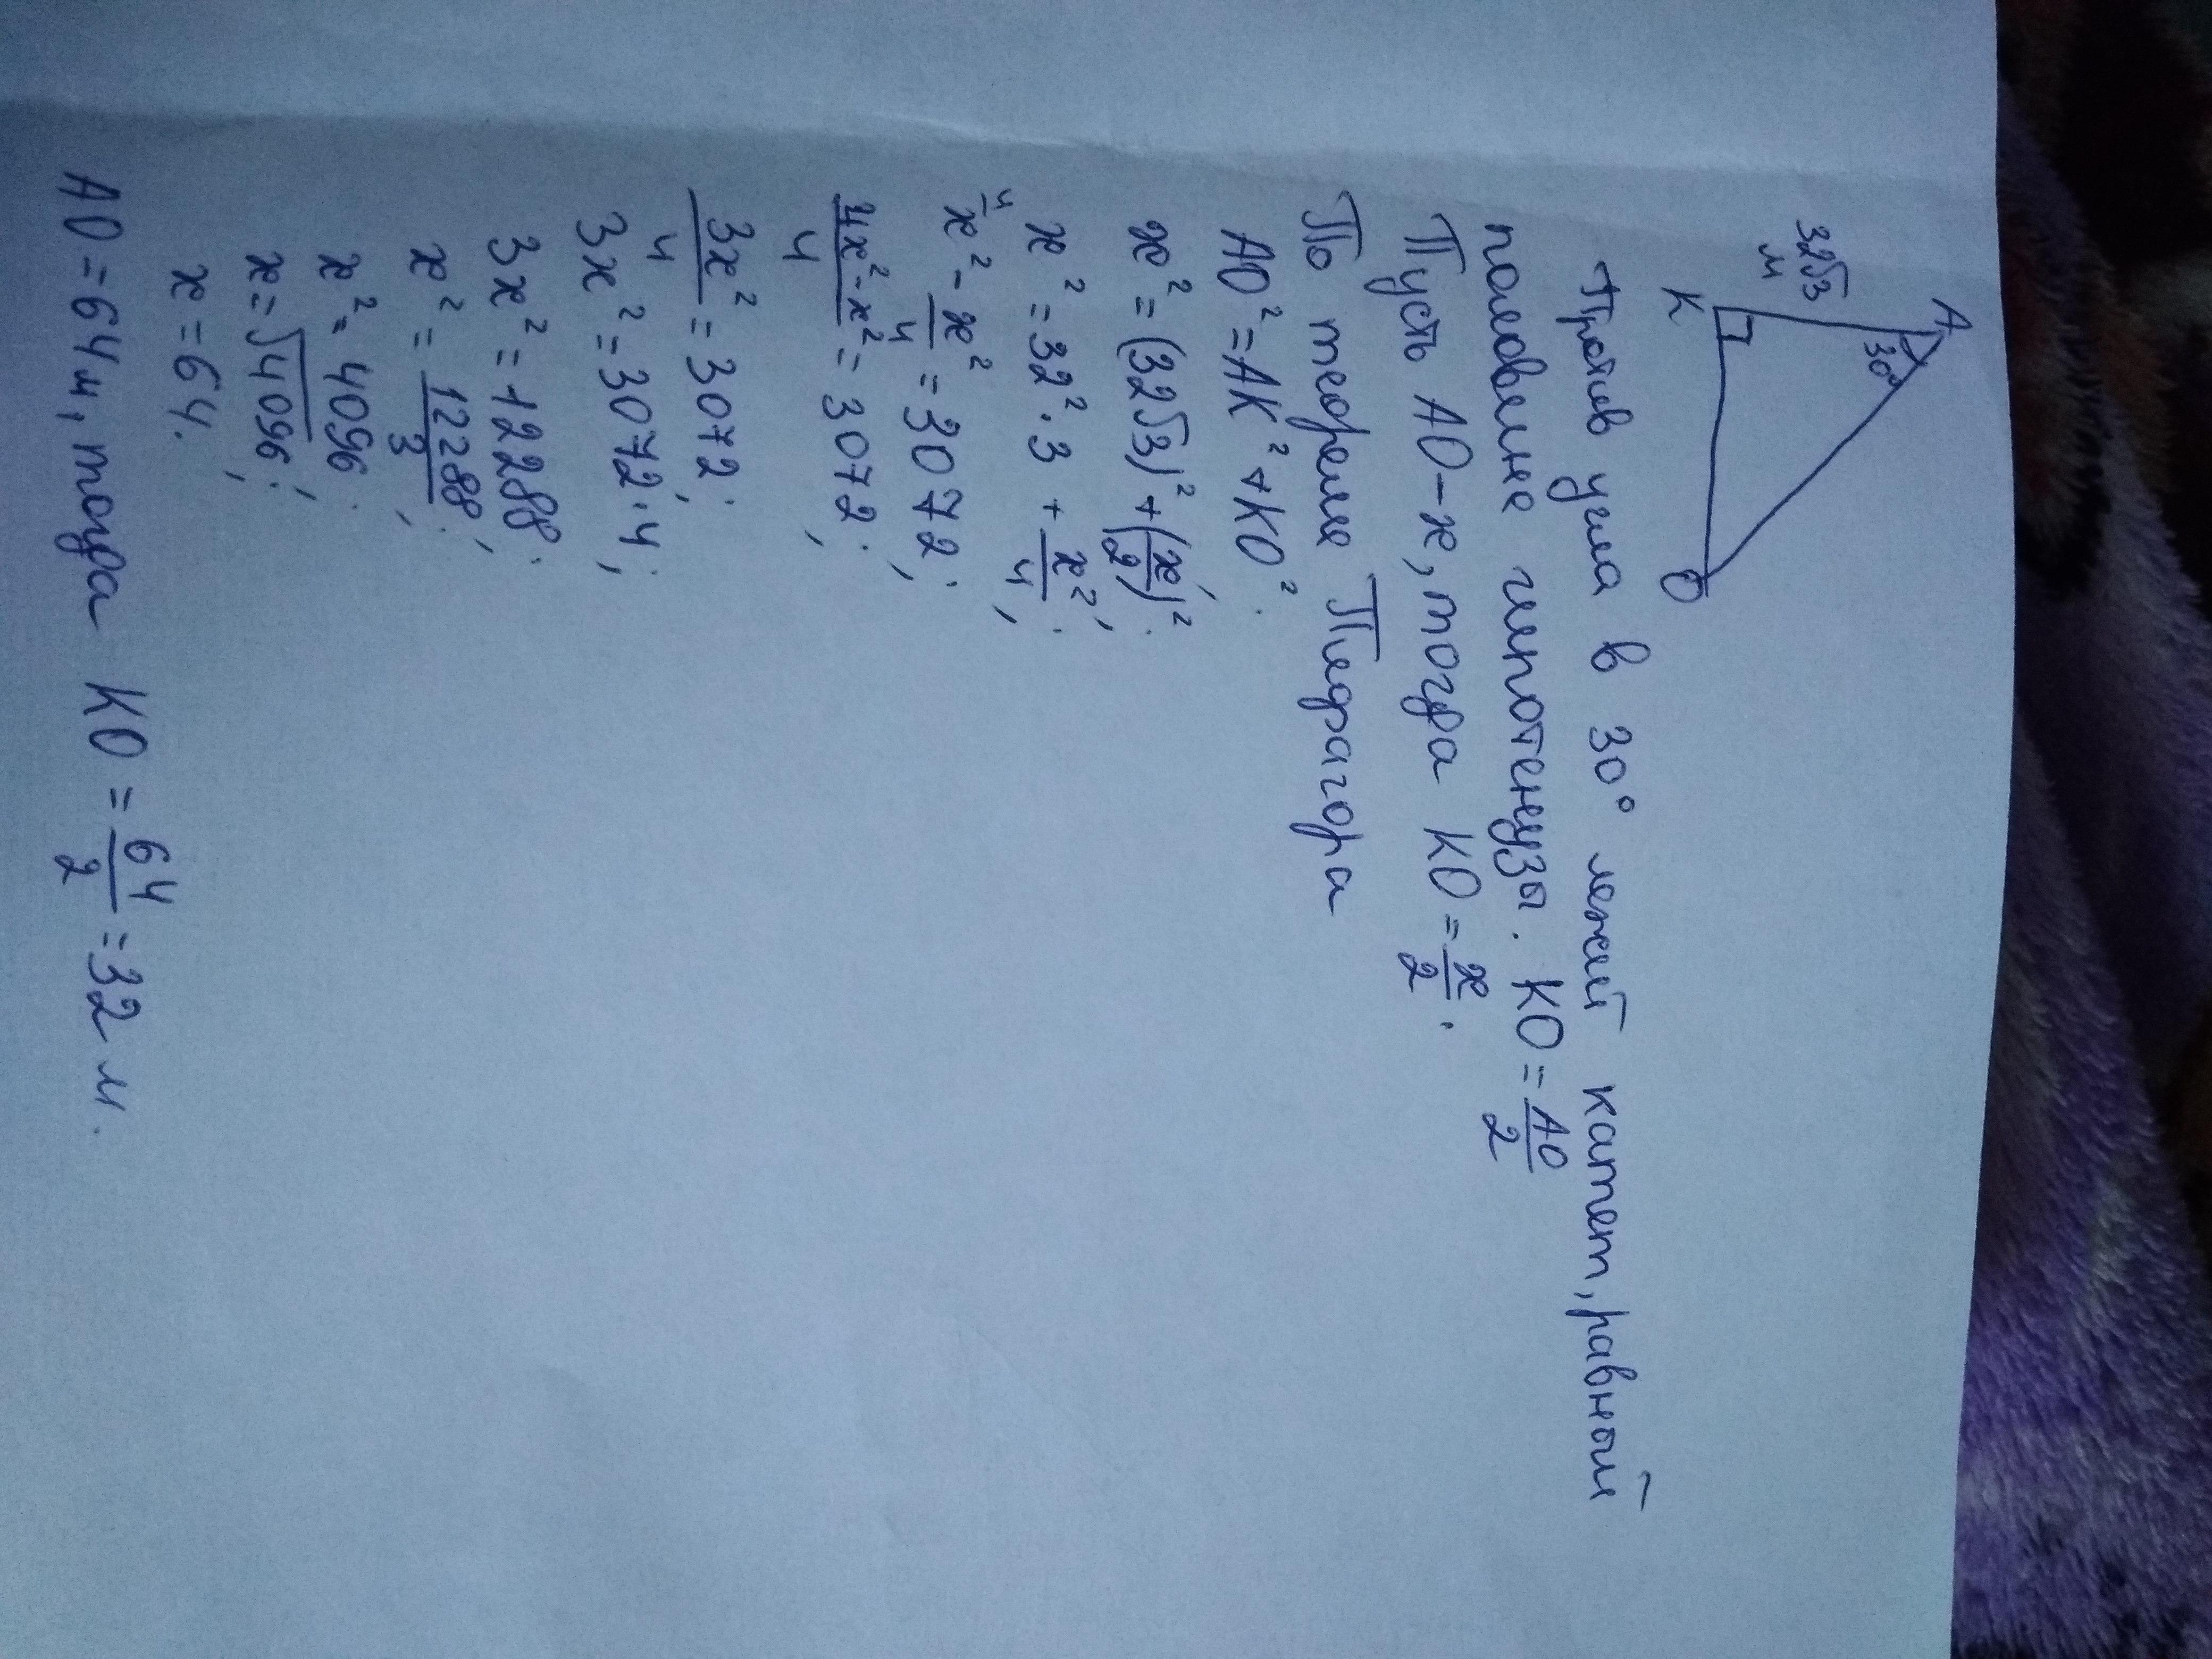 A
30°
32√3
м
K
O
Против угла в 30° лежит катет, равный
половине гипотенузы. KO = AO/2
Пусть AO - x, тогда KO = x/2.
По теореме Пифагора
AO² = AK² + KO².
x² = (32√3)² + (x/2)²;
x² = 32² · 3 + x²/4;
4/ x² - x²/4 = 3072;
(4x² - x²)/4 = 3072;
3x²/4 = 3072;
3x² = 3072 · 4;
3x² = 12288;
x² = 12288/3;
x² = 4096;
x = √4096;
x = 64.
AO = 64 м, тогда KO = 64/2 = 32 м.